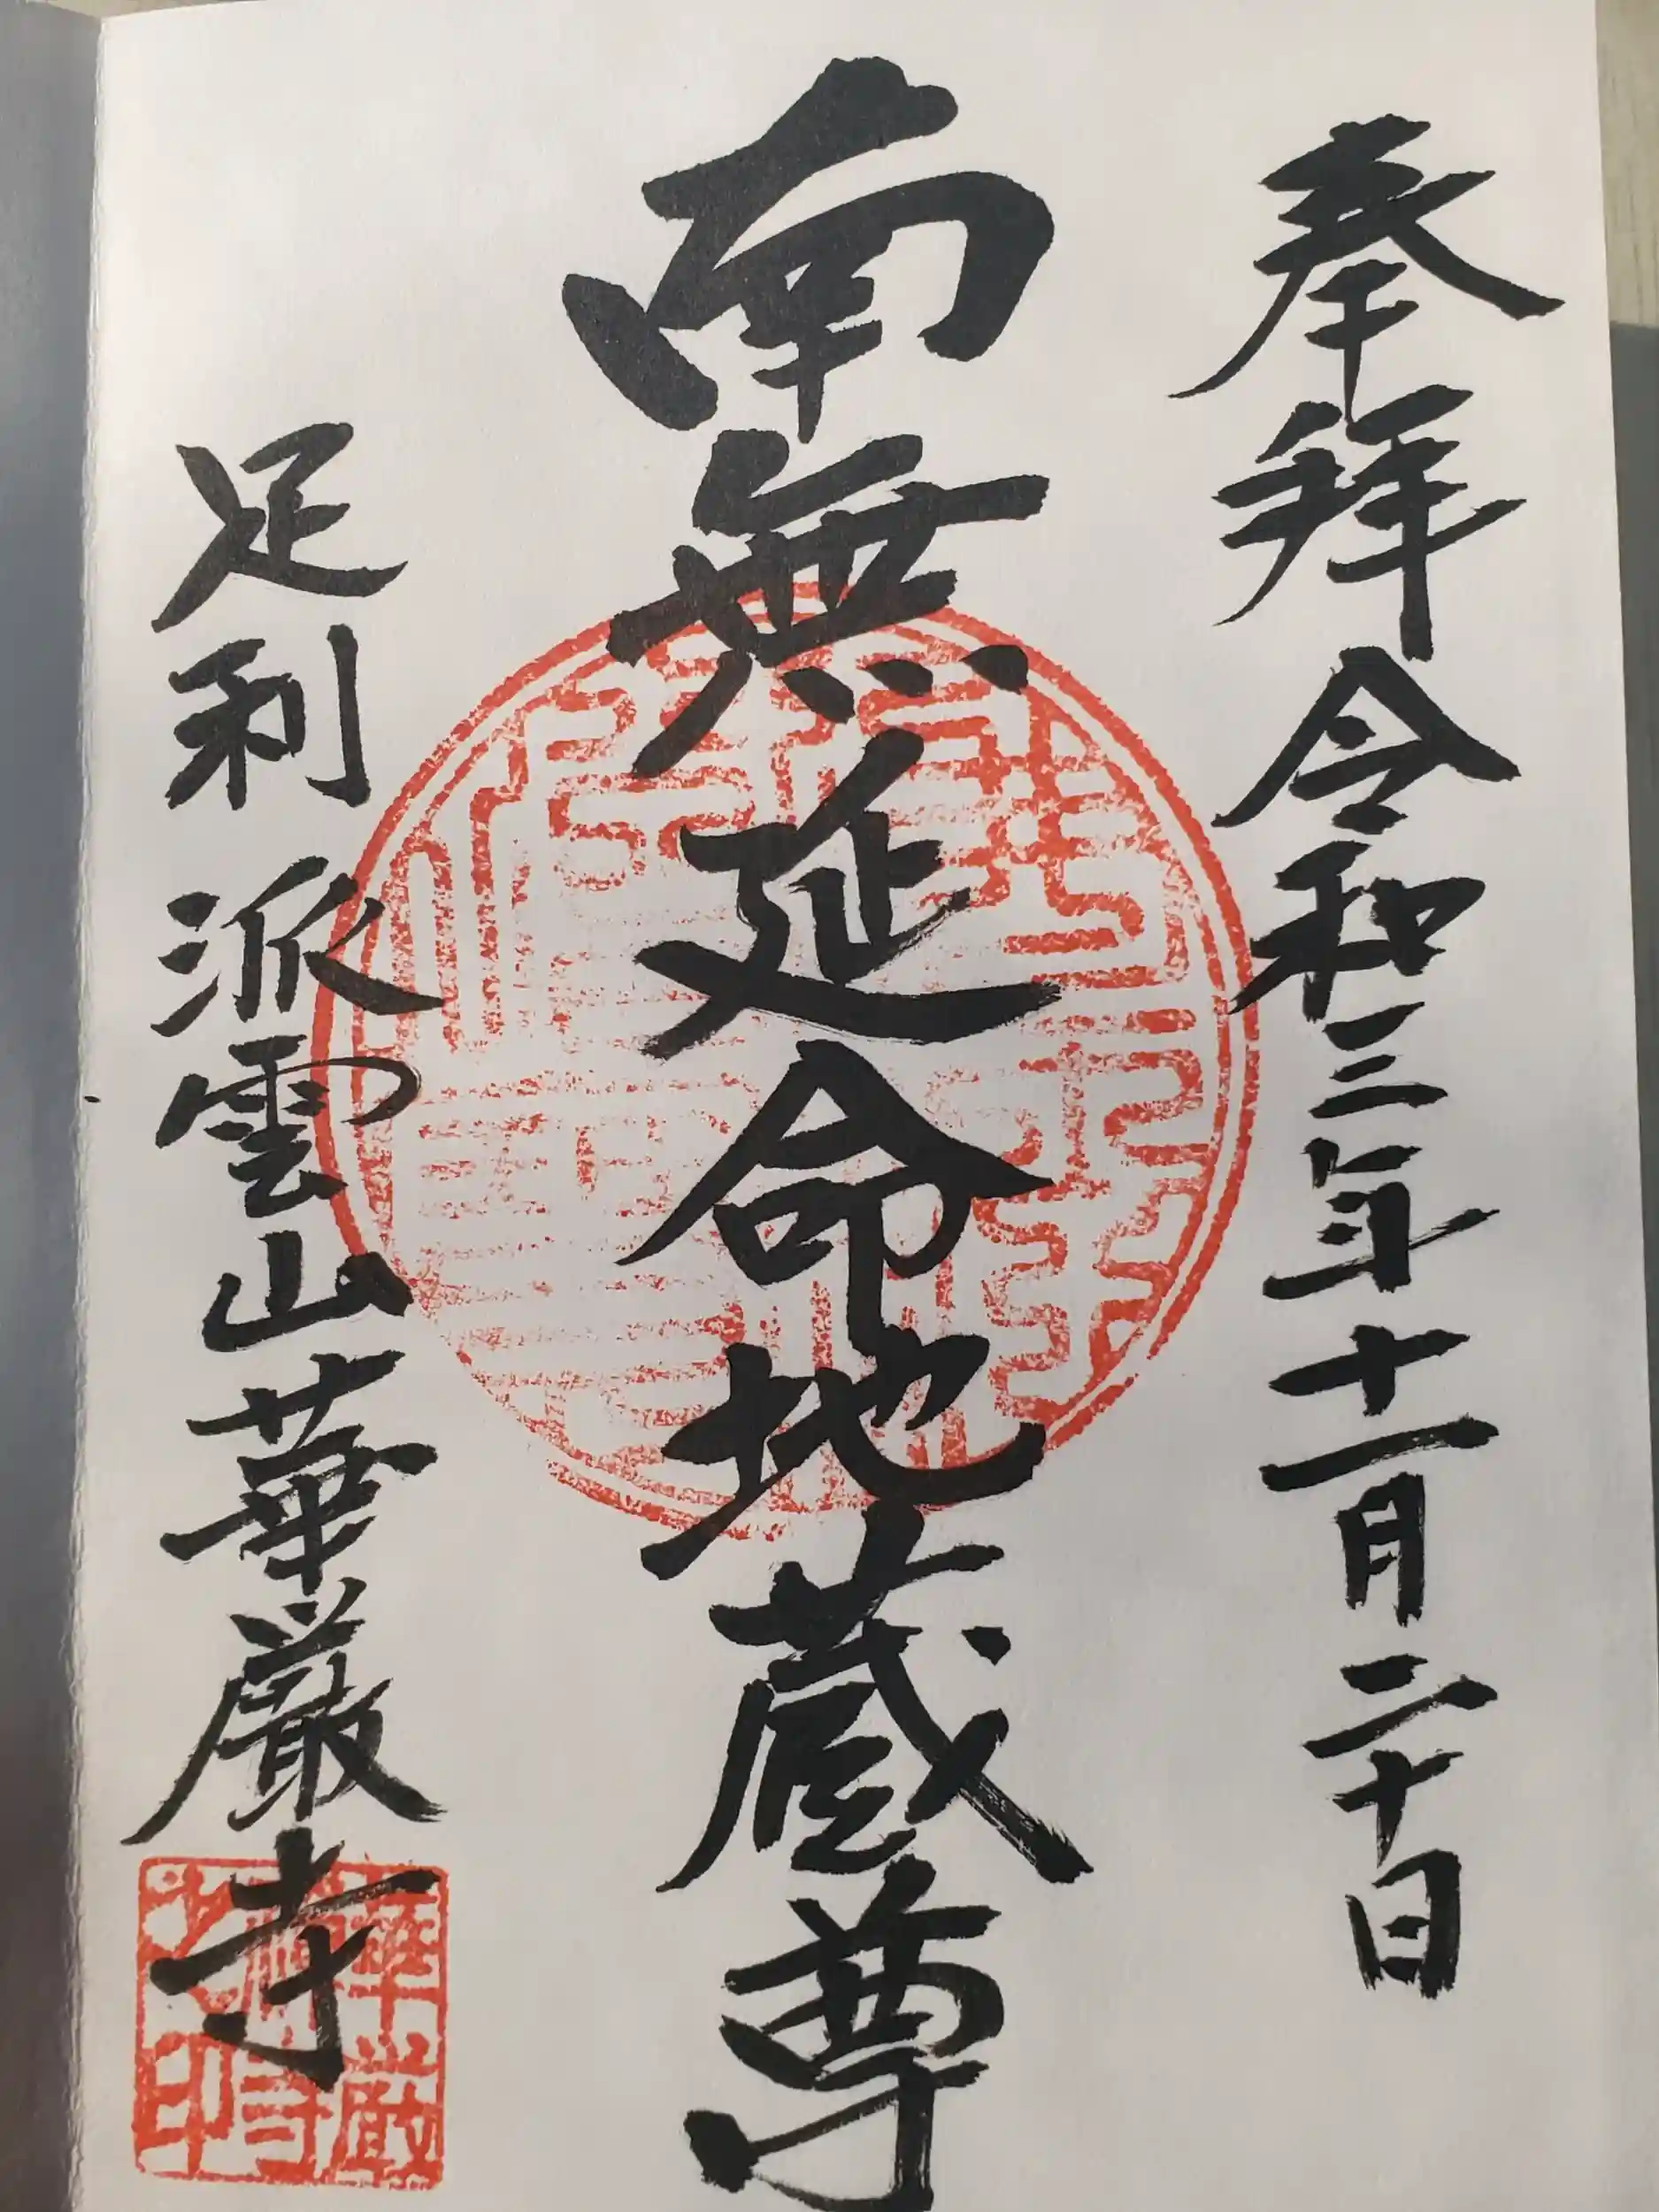 奉拜 令和三年十一月二十日
南無延命地蔵尊
足利 派雲山華厳寺
華厳寺印